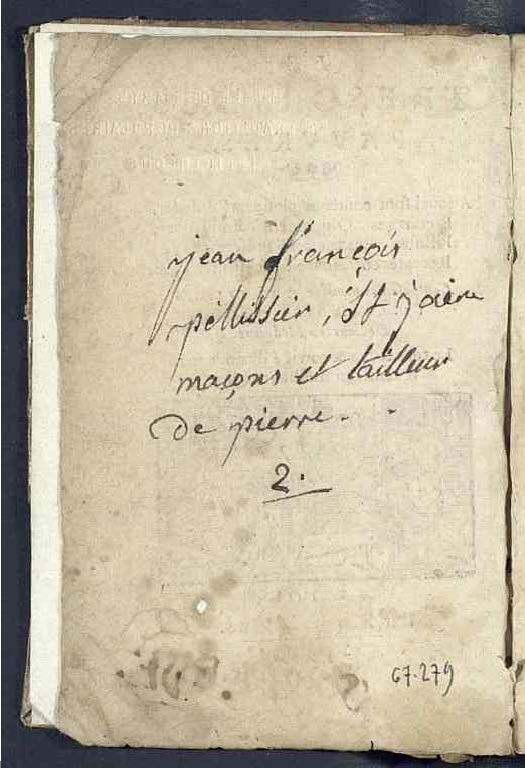 jean françois
pellissier,
maçons et tailleur
de pierre.
2.
67.279